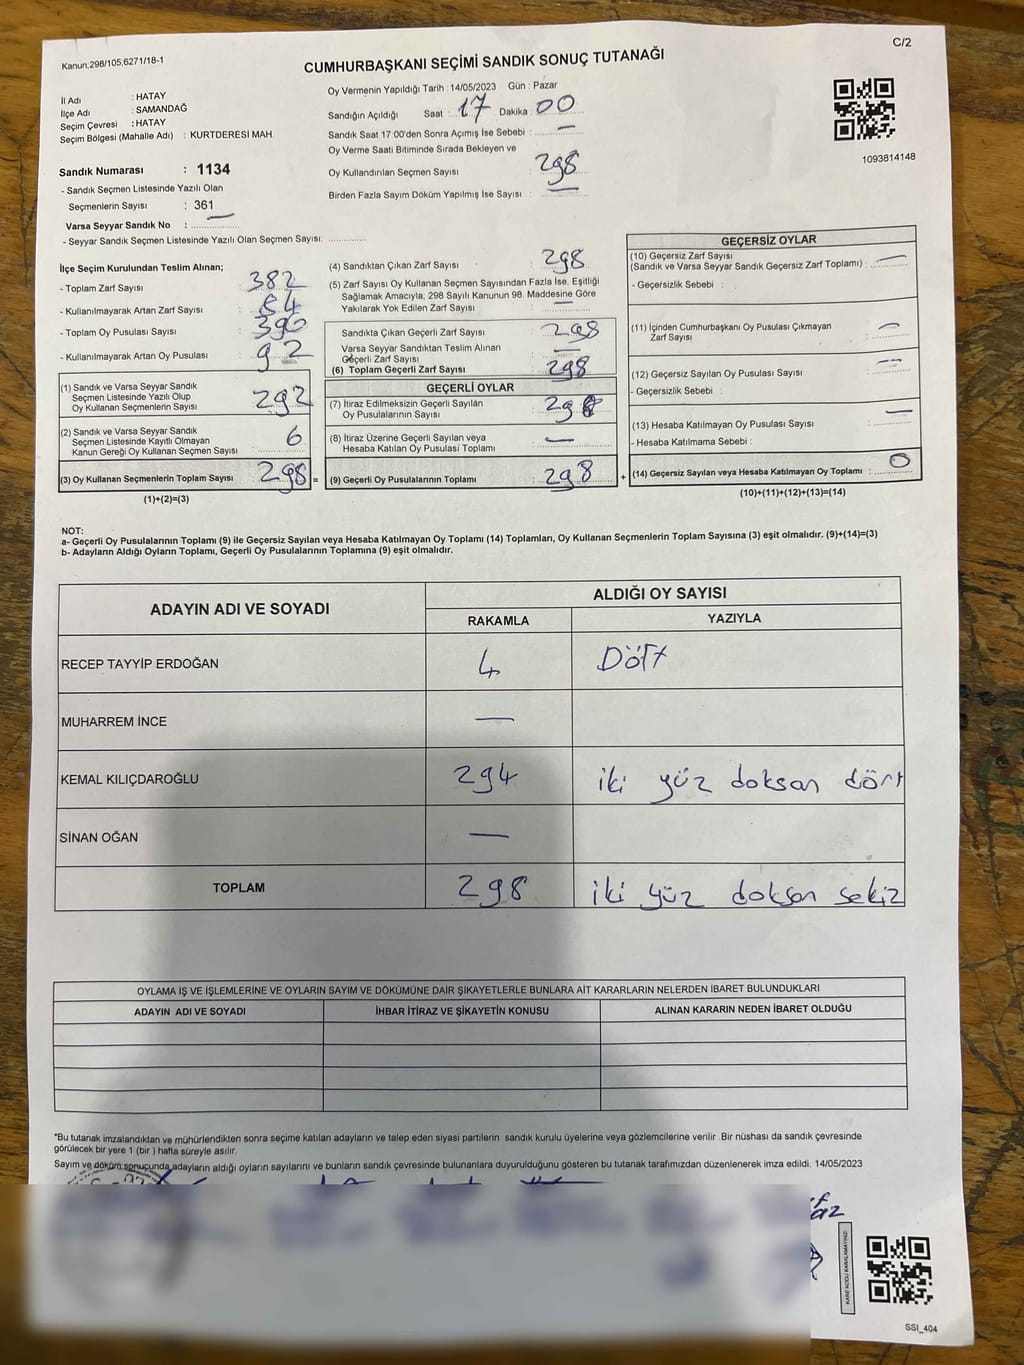 C/2
Kanun:298/105;6271/18-1
CUMHURBAŞKANI SEÇİMİ SANDIK SONUÇ TUTANAĞI
İl Adı : HATAY
İlçe Adı : SAMANDAĞ
Seçim Çevresi : HATAY
Seçim Bölgesi (Mahalle Adı) : KURTDERESİ MAH.
Sandık Numarası : 1134
- Sandık Seçmen Listesinde Yazılı Olan
Seçmenlerin Sayısı : 361
Varsa Seyyar Sandık No : —
- Seyyar Sandık Seçmen Listesinde Yazılı Olan Seçmen Sayısı:
Oy Vermenin Yapıldığı Tarih : 14/05/2023 Gün : Pazar
Sandığın Açıldığı Saat : 17 Dakika : 00
Sandık Saat 17:00'den Sonra Açımış İse Sebebi : —
Oy Verme Saati Bitiminde Sırada Bekleyen ve
Oy Kullandırılan Seçmen Sayısı : 298
Birden Fazla Sayım Döküm Yapılmış İse Sayısı : —
1093814148
İlçe Seçim Kurulundan Teslim Alınan;
- Toplam Zarf Sayısı : 382
- Kullanılmayarak Artan Zarf Sayısı : 84
- Toplam Oy Pusulası Sayısı : 390
- Kullanılmayarak Artan Oy Pusulası : 92
(1) Sandık ve Varsa Seyyar Sandık
Seçmen Listesinde Yazılı Olup
Oy Kullanan Seçmenlerin Sayısı : 292
(2) Sandık ve Varsa Seyyar Sandık
Seçmen Listesinde Kayıtlı Olmayan
Kanun Gereği Oy Kullanan Seçmen Sayısı : 6
(3) Oy Kullanan Seçmenlerin Toplam Sayısı : 298 =
(1)+(2)=(3)
(4) Sandıktan Çıkan Zarf Sayısı : 298
(5) Zarf Sayısı Oy Kullanan Seçmen Sayısından Fazla İse, Eşitliği
Sağlamak Amacıyla, 298 Sayılı Kanunun 98. Maddesine Göre
Yakılarak Yok Edilen Zarf Sayısı : —
Sandıkta Çıkan Geçerli Zarf Sayısı : 298
Varsa Seyyar Sandıktan Teslim Alınan
Geçerli Zarf Sayısı : —
(6) Toplam Geçerli Zarf Sayısı : 298
GEÇERLİ OYLAR
(7) İtiraz Edilmeksizin Geçerli Sayılan
Oy Pusulalarının Sayısı : 298
(8) İtiraz Üzerine Geçerli Sayılan veya
Hesaba Katılan Oy Pusulası Toplamı : —
(9) Geçerli Oy Pusulalarının Toplamı : 298 +
GEÇERSİZ OYLAR
(10) Geçersiz Zarf Sayısı
(Sandık ve Varsa Seyyar Sandık Geçersiz Zarf Toplamı) : —
- Geçersizlik Sebebi :
(11) İçinden Cumhurbaşkanı Oy Pusulası Çıkmayan
Zarf Sayısı : —
(12) Geçersiz Sayılan Oy Pusulası Sayısı : —
- Geçersizlik Sebebi :
(13) Hesaba Katılmayan Oy Pusulası Sayısı : —
- Hesaba Katılmama Sebebi :
(14) Geçersiz Sayılan veya Hesaba Katılmayan Oy Toplamı : 0
(10)+(11)+(12)+(13)=(14)
NOT:
a- Geçerli Oy Pusulalarının Toplamı (9) ile Geçersiz Sayılan veya Hesaba Katılmayan Oy Toplamı (14) Toplamları, Oy Kullanan Seçmenlerin Toplam Sayısına (3) eşit olmalıdır. (9)+(14)=(3)
b- Adayların Aldığı Oyların Toplamı, Geçerli Oy Pusulalarının Toplamına (9) eşit olmalıdır.
ADAYIN ADI VE SOYADI ALDIĞI OY SAYISI
RAKAMLA YAZIYLA
RECEP TAYYİP ERDOĞAN 4 Dört
MUHARREM İNCE —
KEMAL KILIÇDAROĞLU 294 iki yüz doksan dört
SİNAN OĞAN —
TOPLAM 298 iki yüz doksan sekiz
OYLAMA İŞ VE İŞLEMLERİNE VE OYLARIN SAYIM VE DÖKÜMÜNE DAİR ŞİKAYETLERLE BUNLARA AİT KARARLARIN NELERDEN İBARET BULUNDUKLARI
ADAYIN ADI VE SOYADI İHBAR İTİRAZ VE ŞİKAYETİN KONUSU ALINAN KARARIN NEDEN İBARET OLDUĞU
*Bu tutanak imzalandıktan ve mühürlendikten sonra seçime katılan adayların ve talep eden siyasi partilerin sandık kurulu üyelerine veya gözlemcilerine verilir .Bir nüshası da sandık çevresinde
görülecek bir yere 1 (bir ) hafta süreyle asılır.
Sayım ve döküm sonucunda adayların aldığı oyların sayılarını ve bunların sandık çevresinde bulunanlara duyurulduğunu gösteren bu tutanak tarafımızdan düzenlenerek imza edildi. 14/05/2023
KARE KODU KARALAMAYINIZ!
SSI_404